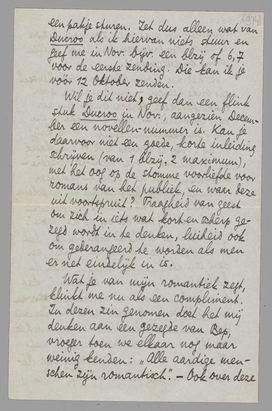 een pakje sturen. Zet dus alleen wat van
Ducroo als ik hiervan niets stuur en
geef me in Nov. bijv. een blzij of 6, 7
voor de eerste zending. Die kan ik je
vóór 12 Oktober zenden.
Wil je dit niet, geef dan een flink
stuk Ducroo in Nov., aangezien Decem-
ber een novellen-nummer is. Kan je
daarvoor niet een goede korte inleiding
schrijven (van 1 blzij. 2 maximum),
met het oog op de stomme voorliefde voor
romans van het publiek, en waar deze
uit voortspruit? Traagheid van geest
om zich in iets wat kort en scherp ge-
zegd wordt in te denken, luiheid ook
om gebarengeerd te worden als men
er net eindelijk in is.
Wat je van mijn romantiek zegt,
klinkt me nu als een compliment.
In dezen zin genomen doet het mij
denken aan een gezegde van Bep,
vroeger toen we elkaar nog maar
weinig kenden: „Alle aardige men-
schen zijn romantisch". — Ook over deze